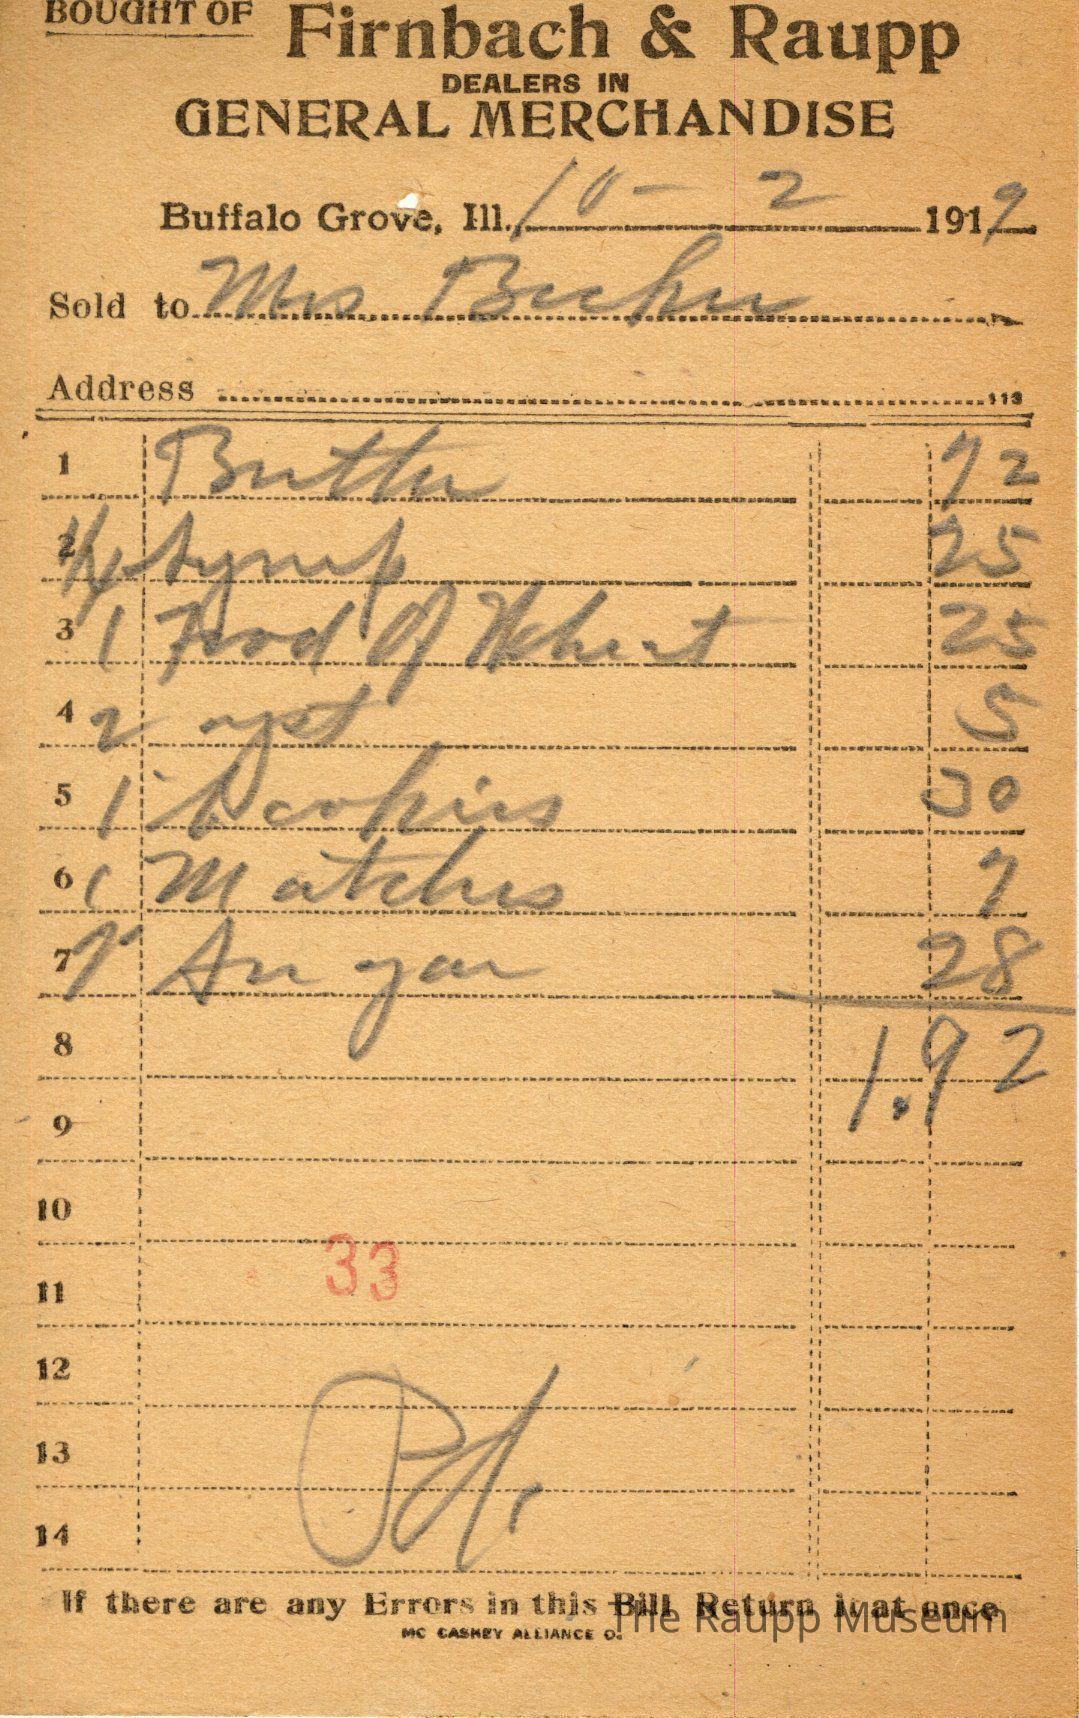 BOUGHT OF Firnbach & Raupp
DEALERS IN
GENERAL MERCHANDISE
Buffalo Grove, Ill. 10 - 2 1919
Sold to Mrs
Address 113
1 Butter 72
2 1/4 Syrup 25
3 1 Food Of Wheat 25
4 2 yst 5
5 1 30
6 1 Matches 7
7 28
8 1.92
9
10
11 33
12
13 Pd.
14
If there are any Errors in this Bill Return it at once
MC CASKEY ALLIANCE O.
The Raupp Museum